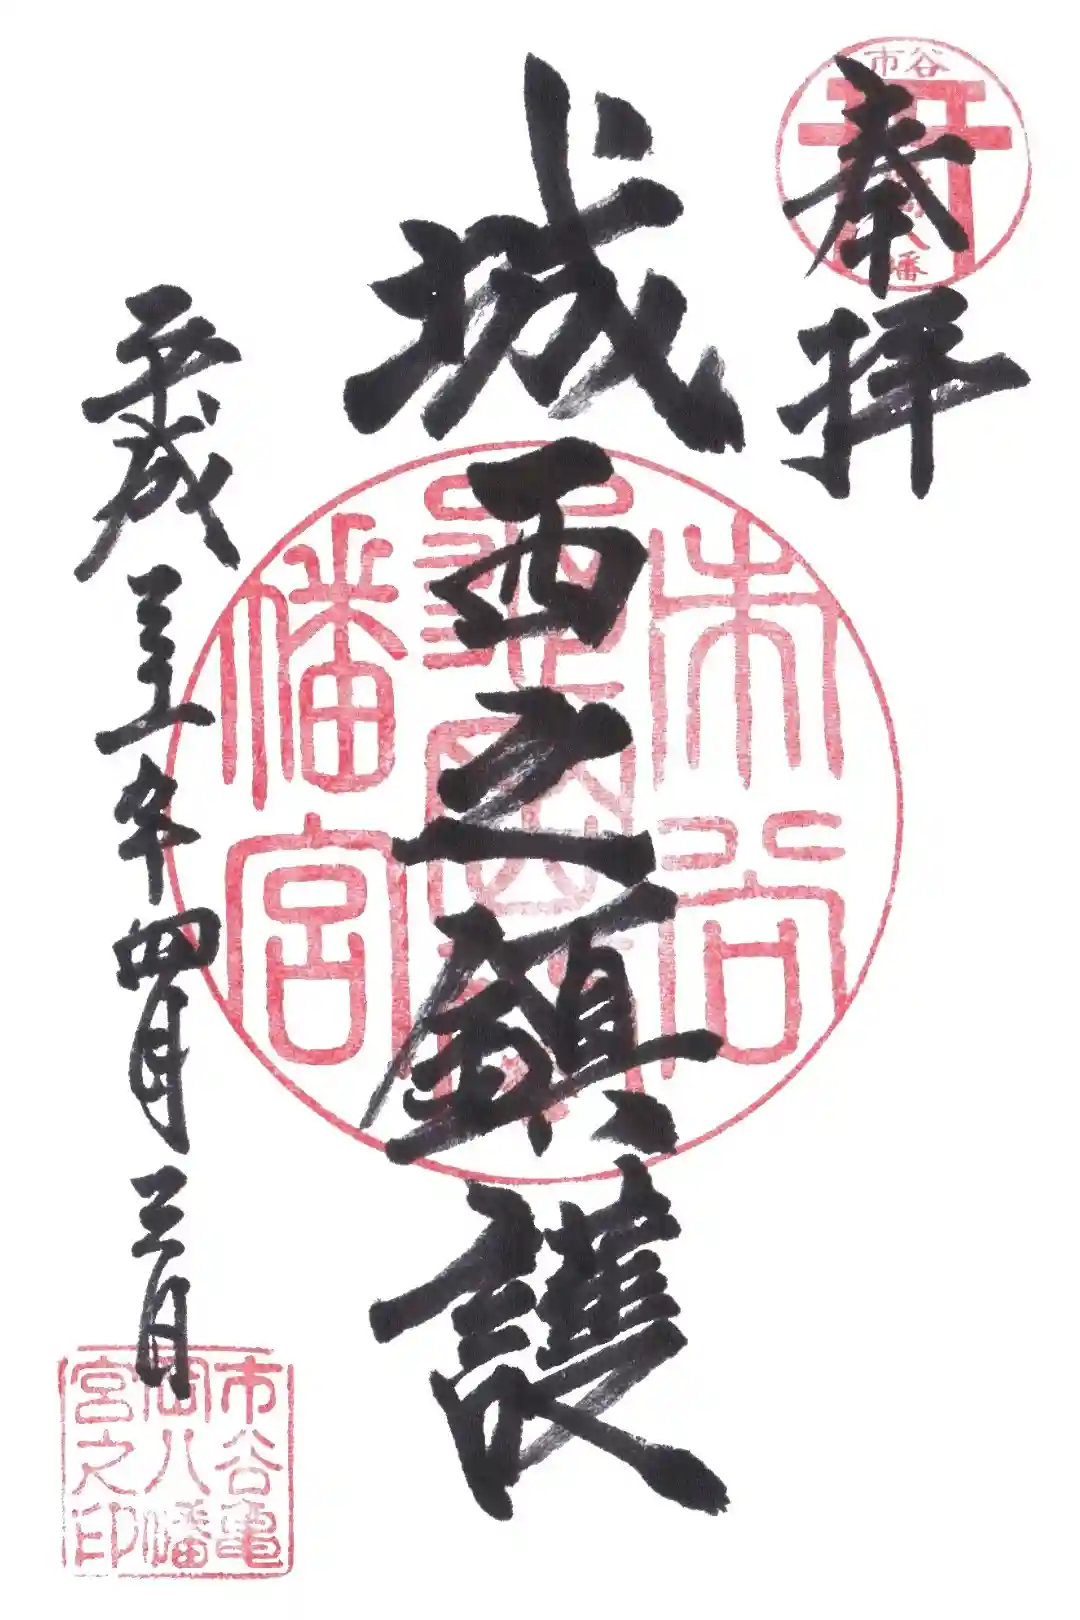 市谷
亀岡八幡
奉拝
市谷
龜岡八
幡宮
城西之鎮護
平成三十一年四月三日
市谷亀
岡八幡
宮之印